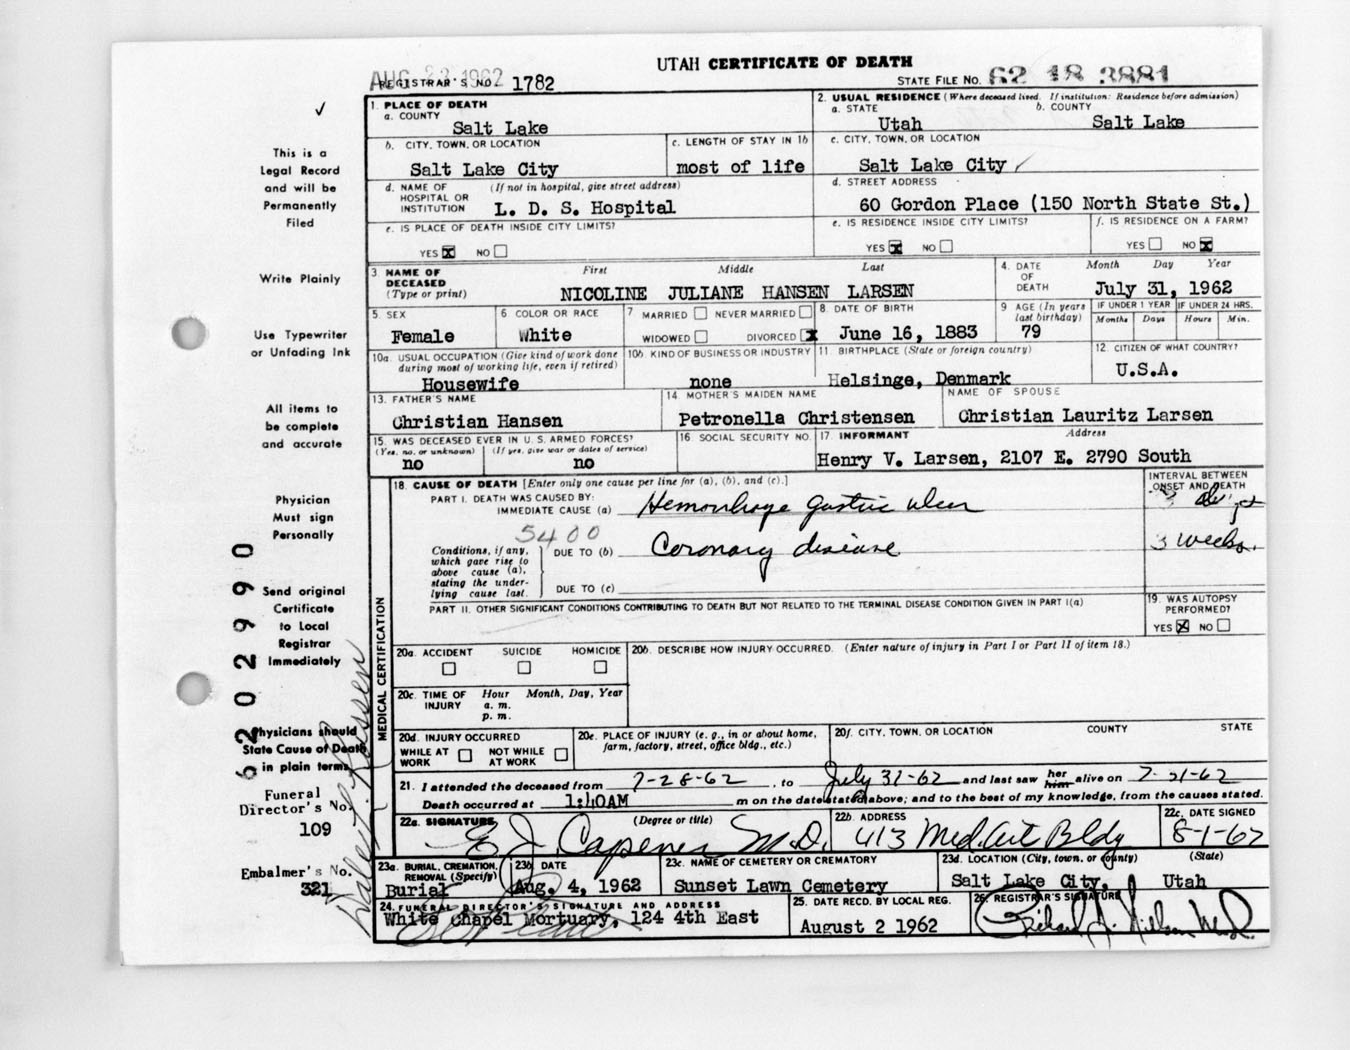 UTAH CERTIFICATE OF DEATH
AUG 23 1962
REGISTRAR'S NO. 1782
STATE FILE NO. 62 18 3881
✓
This is a
Legal Record
and will be
Permanently
Filed
Write Plainly
Use Typewriter
or Unfading Ink
All items to
be complete
and accurate
Physician
Must sign
Personally
Send original
Certificate
to Local
Registrar
Immediately
Physicians should
State Cause of Death
in plain terms
Funeral
Director's No.
109
Embalmer's No.
321
62 02990
1. PLACE OF DEATH
a. COUNTY
Salt Lake
2. USUAL RESIDENCE (Where deceased lived. If institution: Residence before admission)
a. STATE b. COUNTY
Utah Salt Lake
b. CITY, TOWN, OR LOCATION
Salt Lake City
c. LENGTH OF STAY IN 1b
most of life
c. CITY, TOWN, OR LOCATION
Salt Lake City ✓
d. NAME OF HOSPITAL OR INSTITUTION (If not in hospital, give street address)
L. D. S. Hospital
d. STREET ADDRESS
60 Gordon Place (150 North State St.)
e. IS PLACE OF DEATH INSIDE CITY LIMITS?
YES X NO
e. IS RESIDENCE INSIDE CITY LIMITS?
YES X NO
f. IS RESIDENCE ON A FARM?
YES NO X
3. NAME OF DECEASED (Type or print) First Middle Last
NICOLINE JULIANE HANSEN LARSEN
4. DATE OF DEATH Month Day Year
July 31, 1962
5. SEX
Female
6 COLOR OR RACE
White
7 MARRIED NEVER MARRIED
WIDOWED DIVORCED X
8. DATE OF BIRTH
June 16, 1883
9 AGE (In years last birthday)
79
IF UNDER 1 YEAR IF UNDER 24 HRS.
Months Days Hours Min.
10a. USUAL OCCUPATION (Give kind of work done during most of working life, even if retired)
Housewife
10b. KIND OF BUSINESS OR INDUSTRY
none
11. BIRTHPLACE (State or foreign country)
Helsinge, Denmark
12. CITIZEN OF WHAT COUNTRY?
U.S.A.
13. FATHER'S NAME
Christian Hansen
14. MOTHER'S MAIDEN NAME
Petronella Christensen
NAME OF SPOUSE
Christian Lauritz Larsen
15. WAS DECEASED EVER IN U. S. ARMED FORCES?
(Yes, no, or unknown) (If yes, give war or dates of service)
no no
16. SOCIAL SECURITY NO.
17. INFORMANT Address
Henry V. Larsen, 2107 E. 2790 South
MEDICAL CERTIFICATION
18. CAUSE OF DEATH [Enter only one cause per line for (a), (b), and (c).]
INTERVAL BETWEEN ONSET AND DEATH
PART I. DEATH WAS CAUSED BY:
IMMEDIATE CAUSE (a) Hemorrhage gastric ulcer 3 days
5400
Conditions, if any, which gave rise to above cause (a), stating the underlying cause last.
DUE TO (b) Coronary disease 3 weeks.
DUE TO (c)
PART II. OTHER SIGNIFICANT CONDITIONS CONTRIBUTING TO DEATH BUT NOT RELATED TO THE TERMINAL DISEASE CONDITION GIVEN IN PART I(a)
19. WAS AUTOPSY PERFORMED?
YES X NO
20a. ACCIDENT SUICIDE HOMICIDE
20b. DESCRIBE HOW INJURY OCCURRED. (Enter nature of injury in Part I or Part II of item 18.)
20c. TIME OF INJURY Hour Month, Day, Year
a. m.
p. m.
20d. INJURY OCCURRED
WHILE AT WORK NOT WHILE AT WORK
20e. PLACE OF INJURY (e. g., in or about home, farm, factory, street, office bldg., etc.)
20f. CITY, TOWN, OR LOCATION COUNTY STATE
21. I attended the deceased from 7-28-62, to July 31-62 and last saw her him alive on 7-31-62
Death occurred at 1:40AM m on the date stated above; and to the best of my knowledge, from the causes stated.
22a. SIGNATURE (Degree or title)
E J. Capener M.D.
22b. ADDRESS
413 Med. Art Bldg
22c. DATE SIGNED
8-1-62
23a. BURIAL, CREMATION, REMOVAL (Specify)
Burial
23b DATE
Aug. 4, 1962
23c. NAME OF CEMETERY OR CREMATORY
Sunset Lawn Cemetery
23d. LOCATION (City, town, or county) (State)
Salt Lake City, Utah
24. FUNERAL DIRECTOR'S SIGNATURE AND ADDRESS
White Chapel Mortuary, 124 4th East
25. DATE RECD. BY LOCAL REG.
August 2 1962
26. REGISTRAR'S SIGNATURE